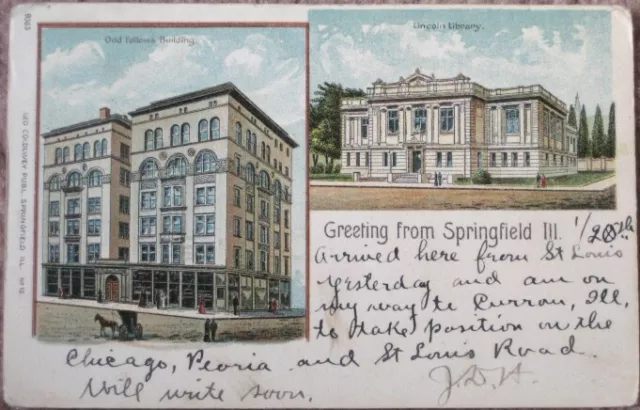 9053
Odd Fellows Building.
Lincoln Library.
GEO CO-DOLIVEY PUBL. SPRINGFIELD ILL.
Greeting from Springfield Ill. 1/20th
Arrived here from St Louis
Yesterday and am on
my way to Curran, Ill,
to take position on the
Chicago, Peoria and St Louis Road.
Will write soon.
J.D.H.